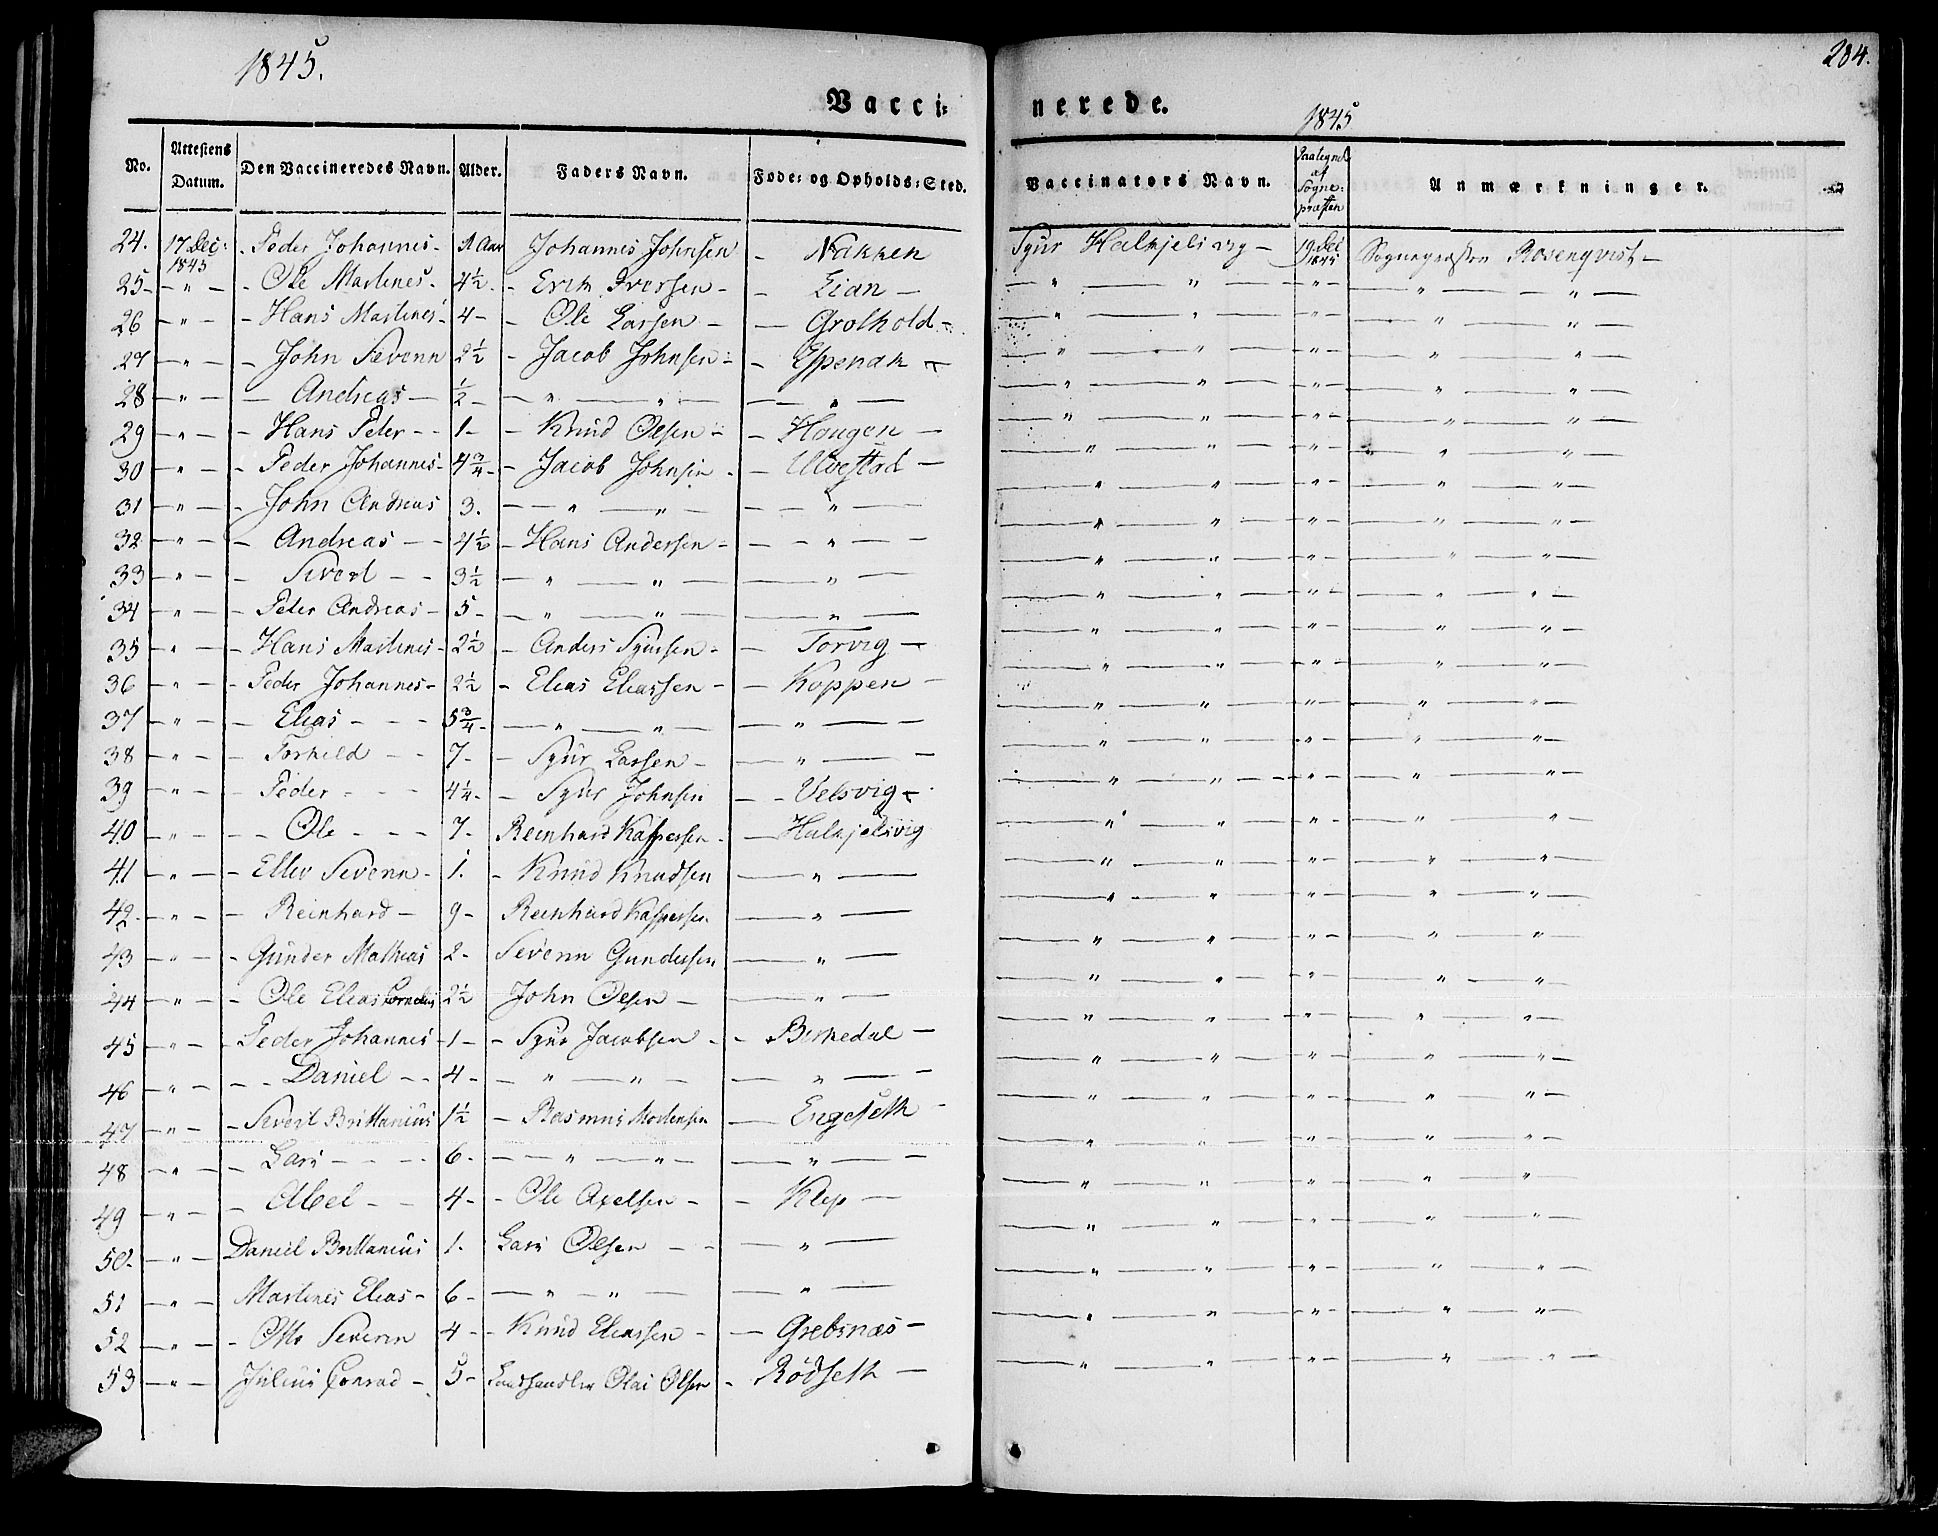 1845.
204.
Vacci: nerede.
1845
No. | Attestens Datum. | Den Vaccineredes Navn. | Alder. | Faders Navn. | Føde: og Opholds: Sted. | Vaccinators Navn. | Paategnet af Sogne: præsten | Anmærkninger.
24. | 17 Dec: 1845 | Peder Johannes | 1 Aar | Johannes Johnsen | Nakken | Sjur Halkjelsvig | 19 Dec 1845 | Sognepræsten Rosenqvist
25 | " | Ole Martines | 4½ | Erik Iversen | Lian | " " | " | " "
26 | " | Hans Martines | 4 | Ole Larsen | Grothold | " " | " | " "
27 | " | John Severin | 2½ | Jacob Johnsen | Espenak | " " | " | " "
28 | " | Andreas | ½ | " " | " | " " | " | " "
29 | " | Hans Peter | 1 | Knud Olsen | Hougen | " " | " | " "
30 | " | Peder Johannes | 4¾ | Jacob Johnsen | Ulvestad | " " | " | " "
31 | " | John Andreas | 3. | " " | " | " " | " | " "
32 | " | Andreas | 4½ | Hans Andersen | " | " " | " | " "
33 | " | Sivert | 3½ | " " | " | " " | " | " "
34 | " | Peter Andreas | 5 | " " | " | " " | " | " "
35 | " | Hans Martines | 2½ | Anders Sjursen | Torvig | " " | " | " "
36 | " | Peder Johannes | 2½ | Elias Eliassen | Koppen | " " | " | " "
37 | " | Elias | 5¾ | " " | " | " " | " | " "
38 | " | Torkild | 7 | Sjur Larsen | " | " " | " | " "
39 | " | Peder | 4¼ | Sjur Johnsen | Velsvig | " " | " | " "
40 | " | Ole | 7 | Reinhard Kaspersen | Halkjelsvig | " " | " | " "
41 | " | Ellev Severin | 1. | Knud Knudsen | " | " " | " | " "
42 | " | Reinhard | 9 | Reinhard Kaspersen | " | " " | " | " "
43 | " | Gunder Mathias | 2 | Severin Gundersen | " | " " | " | " "
44 | " | Ole Elias Cornelius | 2½ | John Olsen | " | " " | " | " "
45 | " | Peder Johannes | 1 | Sjur Jacobsen | Birkedal | " " | " | " "
46 | " | Daniel | 4 | " " | " | " " | " | " "
47 | " | Sivert Brittanius | 1½ | Rasmus Mortensen | Engeseth | " " | " | " "
48 | " | Lars | 6 | " " | " | " " | " | " "
49 | " | Abel | 4 | Ole Axelsen | Klep | " " | " | " "
50 | " | Daniel Brittanius | 1. | Lars Olsen | " | " " | " | " "
51 | " | Martines Elias | 6 | " " | " | " " | " | " "
52 | " | Otto Severin | 4 | Knud Eliassen | Grebsnæs | " " | " | " "
53 | " | Julius Conrad | 5 | Landhandler Olai Olsen | Rödseth | " " | " | " "